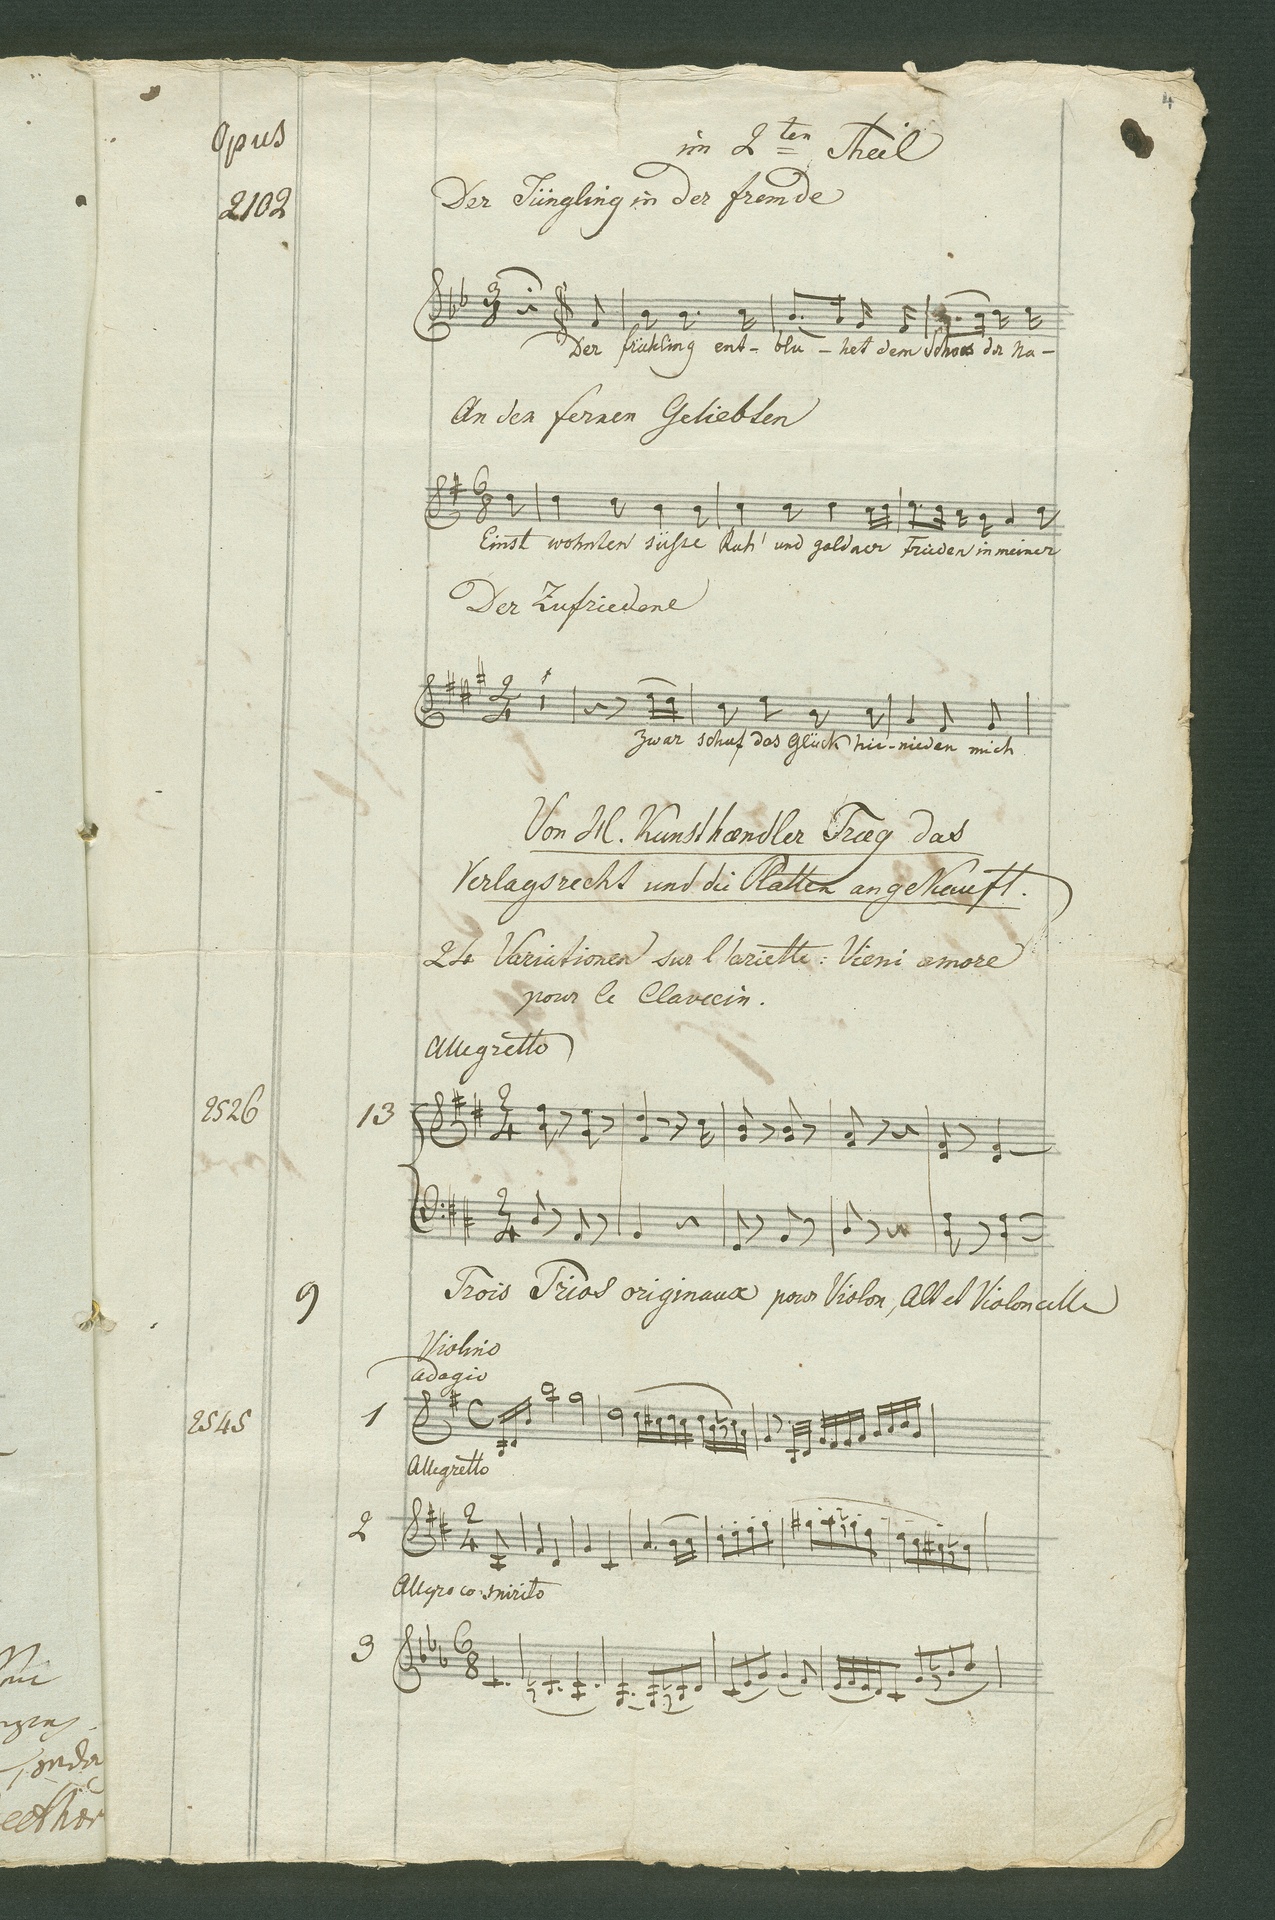 4
Opus
im 2ten Theil
2102
Der Jüngling in der fremde
Der frühling ent- blu - het dem Schoos der Na-
An den fernen Geliebten
Einst wohnten süsse Ruh' und goldner Frieden in meiner
Der Zufriedene
Zwar schuf das Glück hie-nieden mich
Von H. Kunsthændler Træg das
Verlagsrecht und die Platten angekauft.
24 Variationen sur l'ariette: Vieni amore
pour le Clavecin.
Allegretto
2526 13
9 Trois Trios originaux pour Violon, Alt et Violoncelle
Violino
adagio
2545 1
Allegretto
2
Allegro co spirito
3